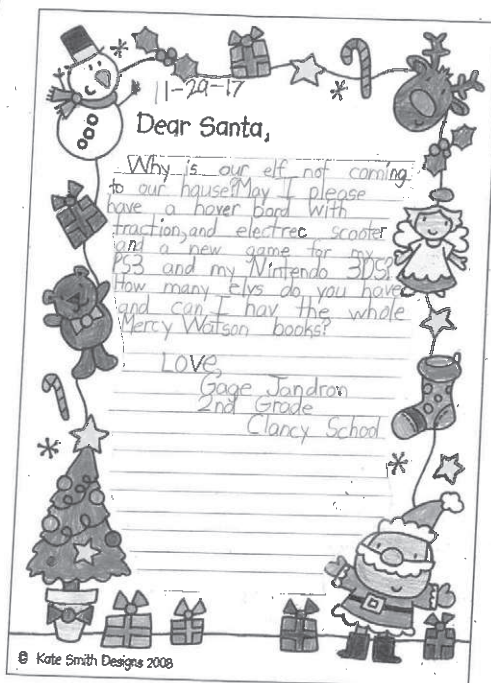 11-29-17
Dear Santa,
Why is our elf not coming
to our hause?May I please
have a hover bord with
traction,and electrec scooter
and a new game for my
PS3 and my Nintendo 3DS?
How many elvs do you have
and can I hav the whole
Mercy Watson books?
Love,
Gage Jandron
2nd Grade
Clancy School
© Kate Smith Designs 2008